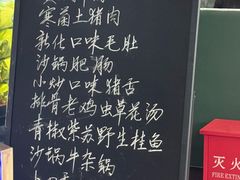 寒菌土猪肉
新化口味毛肚
沙锅肥肠
小炒口味猪舌
排骨老鸡虫草花汤
青椒紫苏野生桂鱼
沙锅牛杂锅
灭火